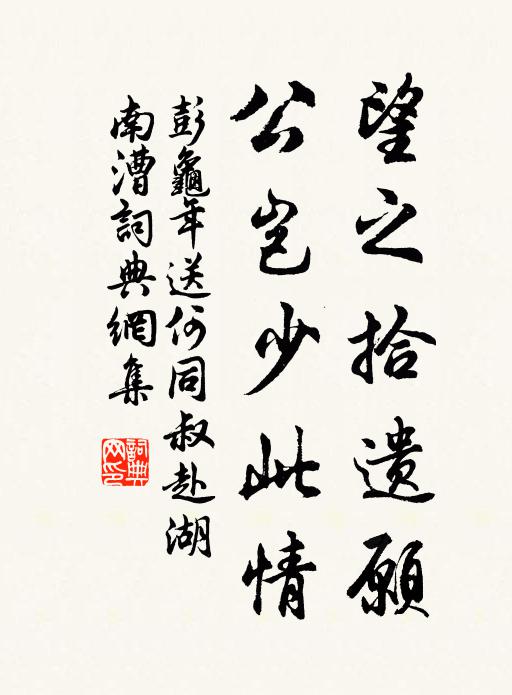 望之拾遺願
公豈少此情
彭龜年送何同叔赴湖
南漕詞典網集
詞典網印